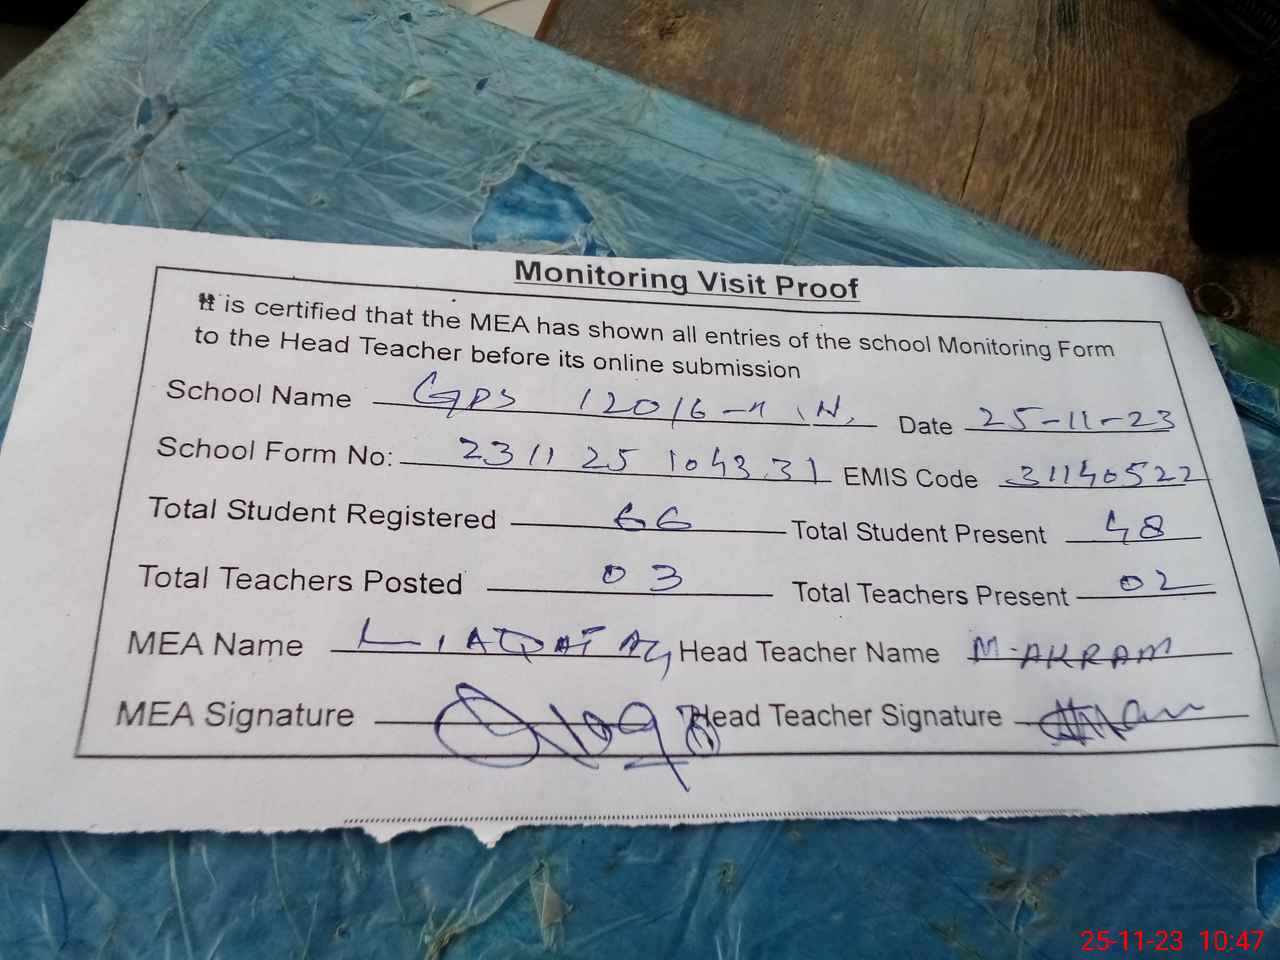 Monitoring Visit Proof
It is certified that the MEA has shown all entries of the school Monitoring Form
to the Head Teacher before its online submission
School Name GPS 120/6-R Date 25-11-23
School Form No: 231125 104331 EMIS Code 31140522
Total Student Registered 66 Total Student Present 48
Total Teachers Posted 03 Total Teachers Present 02
MEA Name LIAQAT ALI Head Teacher Name M-AKRAM
MEA Signature Head Teacher Signature
25-11-23 10:47